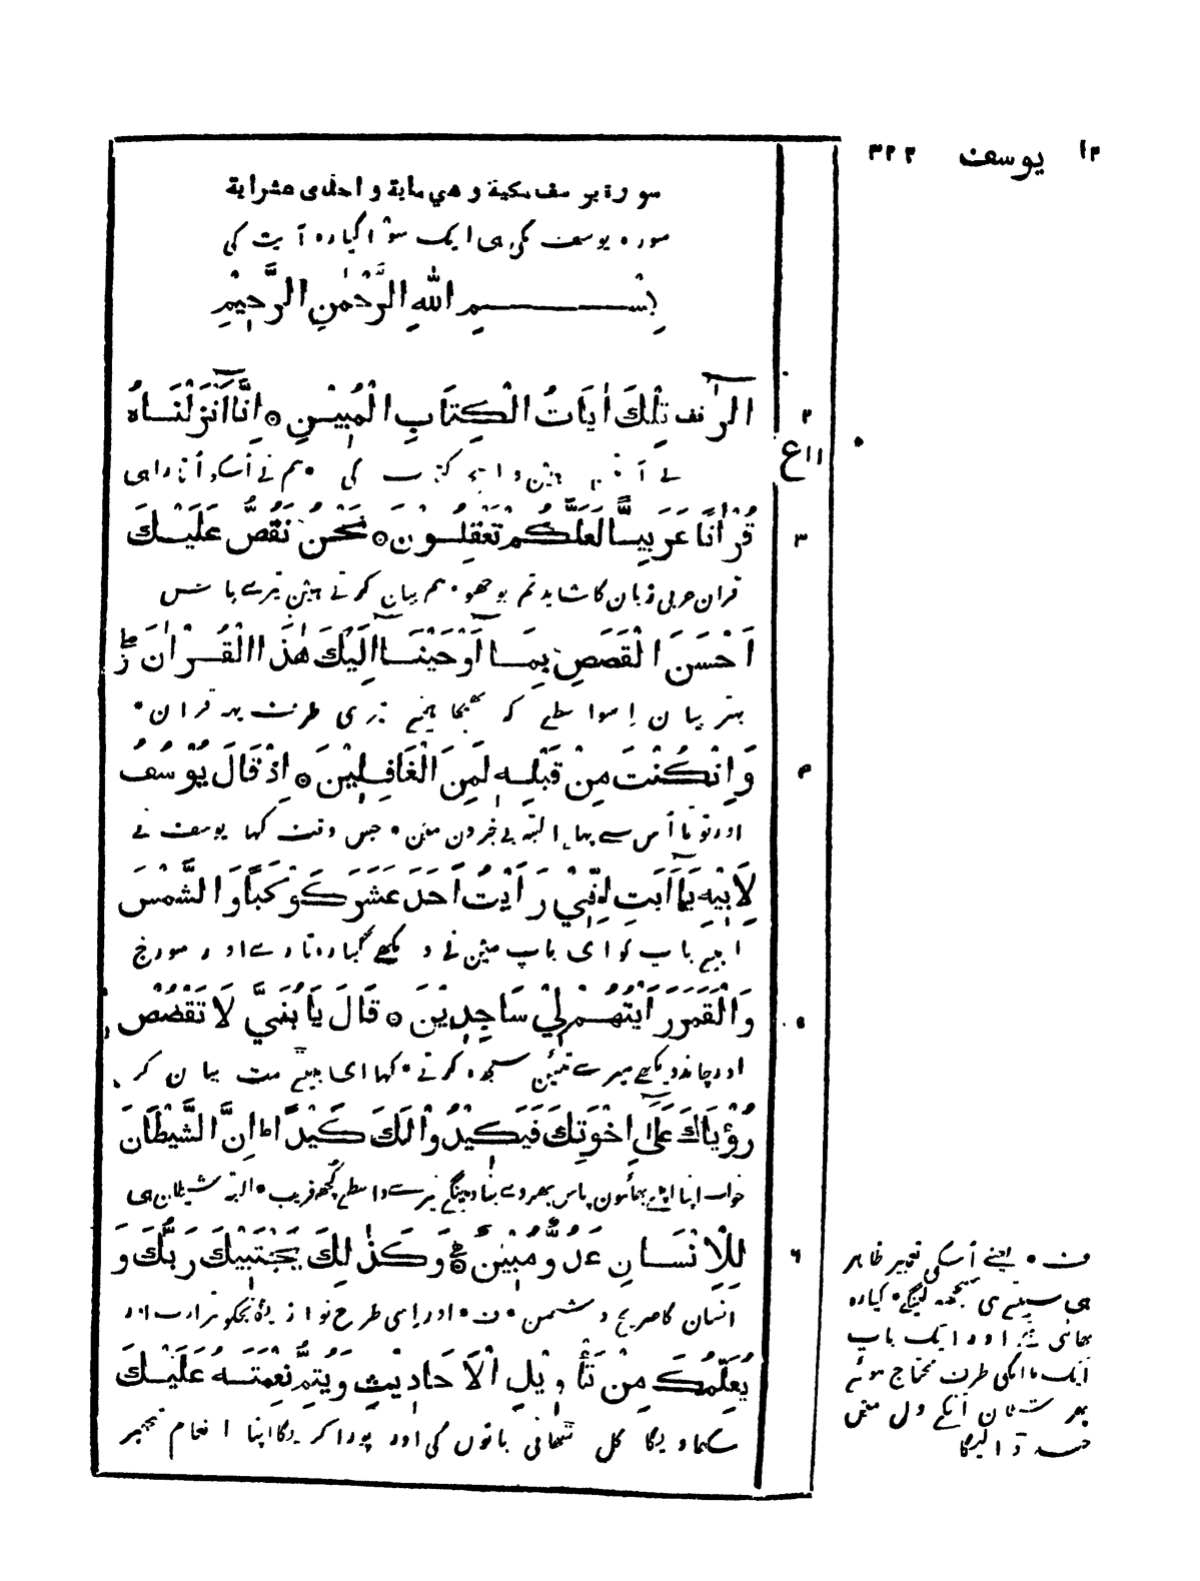 ١٢ یوسف ٣٢٢
سورة یوسف مکیة و هي مایة و احدی عشر ایة
سورہ یوسف مکی ہی ایک سؤ اگیارہ آیت کی
بِسْمِ اللهِ الرَّحْمٰنِ الرَّحِيْمِ
الٓرٰ قف تِلْكَ اٰيَاتُ الْكِتَابِ الْمُبِيْنِ ۞ اِنَّآ اَنْزَلْنَاهُ
٢
ع ١١
یے آیتین ہین واضح کتاب کی • ہم نے اُسکو اُتارا ہی
قُرْاٰنًا عَرَبِيًّا لَعَلَّكُمْ تَعْقِلُوْنَ ۞ نَحْنُ نَقُصُّ عَلَيْكَ
٣
قران عربی زبان کا شاید تم بوجھو • ہم بیان کرتے ہین تیرے پاس
اَحْسَنَ الْقَصَصِ بِمَآ اَوْحَيْنَآ اِلَيْكَ هٰذَا الْقُرْاٰنَ
بہتر بیان اِسواسطے کہ بھیجا ہمنے تیری طرف یہہ قران •
وَاِنْ كُنْتَ مِنْ قَبْلِهٖ لَمِنَ الْغَافِلِيْنَ ۞ اِذْ قَالَ يُوْسُفُ
٤
اور تو تھا اُس سے پہلے البتہ بےخبرون مین • جس وقت کہا یوسف نے
لِاَبِيْهِ يَآ اَبَتِ اِنِّيْ رَاَيْتُ اَحَدَ عَشَرَ كَوْكَبًا وَّالشَّمْسَ
اپنے باپ کو ای باپ مین نے دیکھے گیارہ تارے اور سورج
وَالْقَمَرَ رَاَيْتُهُمْ لِيْ سَاجِدِيْنَ ۞ قَالَ يَا بُنَيَّ لَا تَقْصُصْ
٥
اور چاند دیکھے میرے تئین سجدہ کرتے • کہا ای بیٹے مت بیان کر
رُؤْيَاكَ عَلٰٓى اِخْوَتِكَ فَيَكِيْدُوْا لَكَ كَيْدًا ط اِنَّ الشَّيْطَانَ
خواب اپنا اپنے بھائیون پاس پھر وے بناوینگے تیرے واسطے کُچھ فریب • البتہ شیطان ہی
لِلْاِنْسَانِ عَدُوٌّ مُّبِيْنٌ ۞ وَكَذٰلِكَ يَجْتَبِيْكَ رَبُّكَ وَ
٦
انسان کا صریح دشمن • ف • اور اِسی طرح نوازیگا تجکو تیرا رب اور
يُعَلِّمُكَ مِنْ تَأْوِيْلِ الْاَحَادِيْثِ وَيُتِمُّ نِعْمَتَهٗ عَلَيْكَ
سکھاویگا کل بٹھانی باتون کی اور پورا کریگا اپنا انعام تجھپر
ف • یعنے اُسکی تعبیر ظاہر
ہی سنتے ہی سمجھہ لینگے • گیارہ
بھائی تیرا اور ایک باپ
ایک ما انکی طرف محتاج ہوئے
پھر شیطان اُنکے دل مین
حسد ڈالیگا